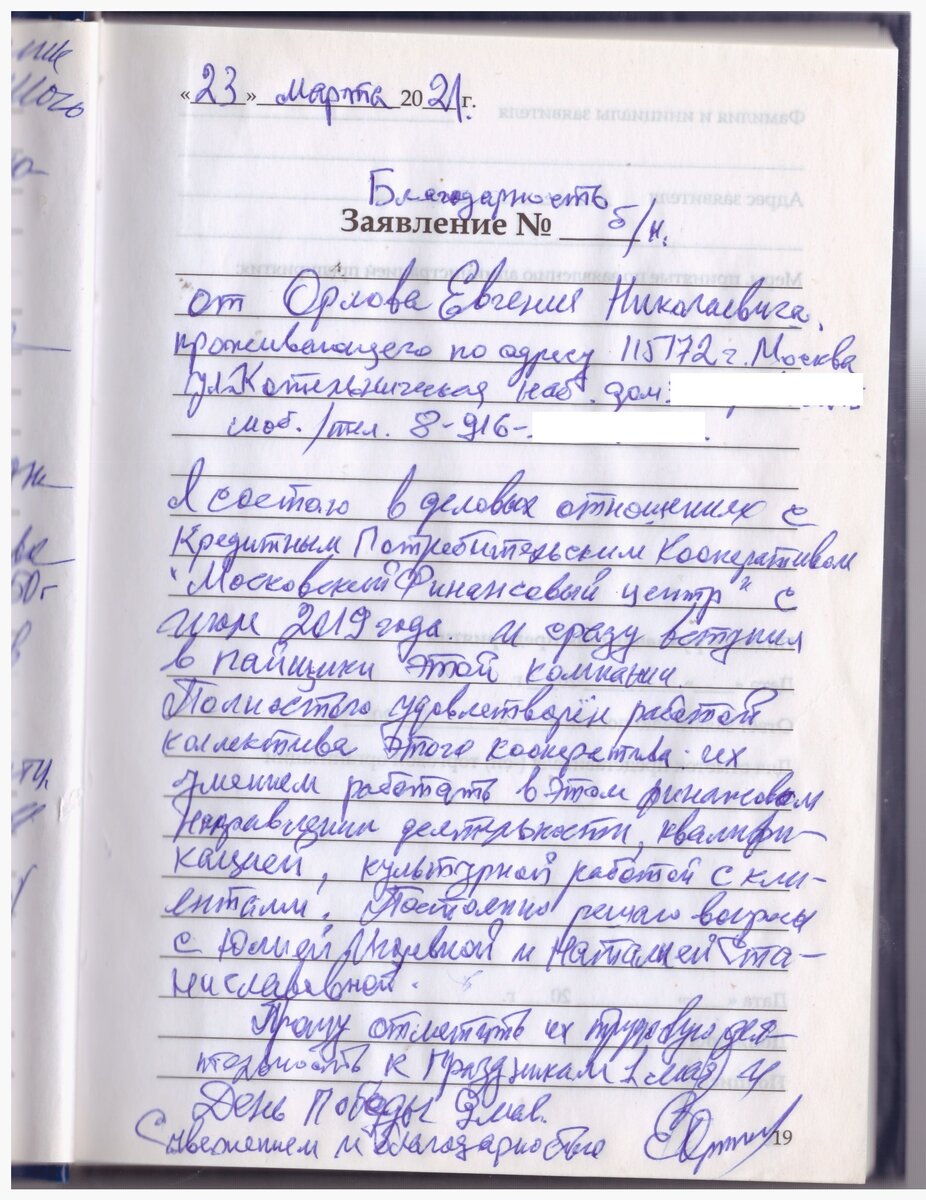 « 23 » марта 2021 г.
Благодарность
Заявление № б/н.
от Орлова Евгения Николаевича,
проживающего по адресу 115172 г. Москва
ул. Котельническая наб. дом.
моб./тел. 8-916-
Я состою в деловых отношениях с
Кредитным Потребительским Кооперативом
"Московский Финансовый центр" с
2019 года и сразу вступил
в пайщики этой компании.
Полностью удовлетворён работой
коллектива этого кооператива их
умением работать в этом финансовом
направлении деятельности, квалифи-
кацией, культурной работой с кли-
ентами. Постоянно решаю вопросы
с Юлией Игоревной и Наталией Ста-
ниславовной.
Прошу отметить их трудовую дея-
тельность к Праздникам 1 мая и
День Победы 9 мая.
С уважением и благодарностью
19